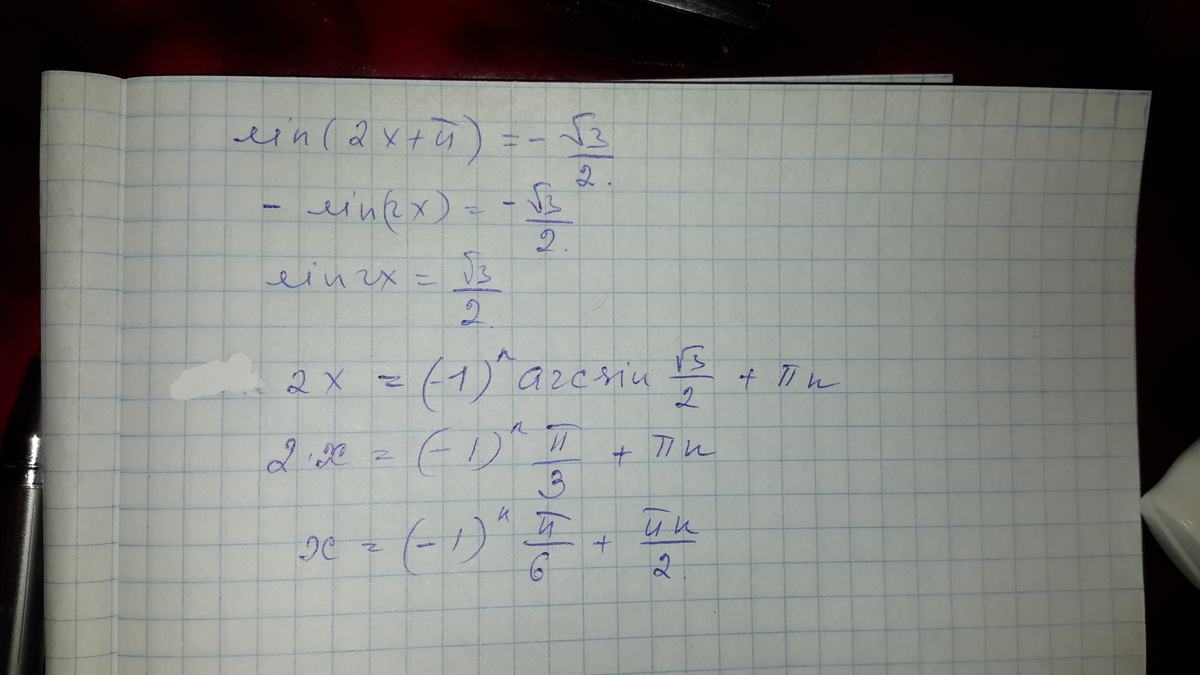 sin(2x+π) = - √3/2.
- sin(2x) = - √3/2.
sin2x = √3/2.
2x = (-1)ⁿ arcsin √3/2 + πn
2·x = (-1)ⁿ π/3 + πn
x = (-1)ⁿ π/6 + πn/2.